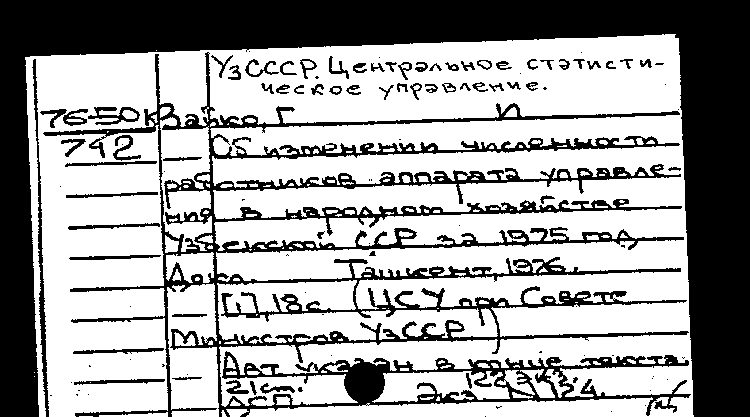 УзССР. Центральное статисти-
ческое управление.
76-50К Зайко, Г И
742 Об изменении численности
работников аппарата управле-
ния в народном хозяйстве
Узбекской ССР за 1975 год.
Докл. Ташкент, 1976.
[1], 18 с. (ЦСУ при Совете
Министров УзССР)
Авт указан в конце текста.
21 cm. 122 экз.
ДСП Экз N 124.